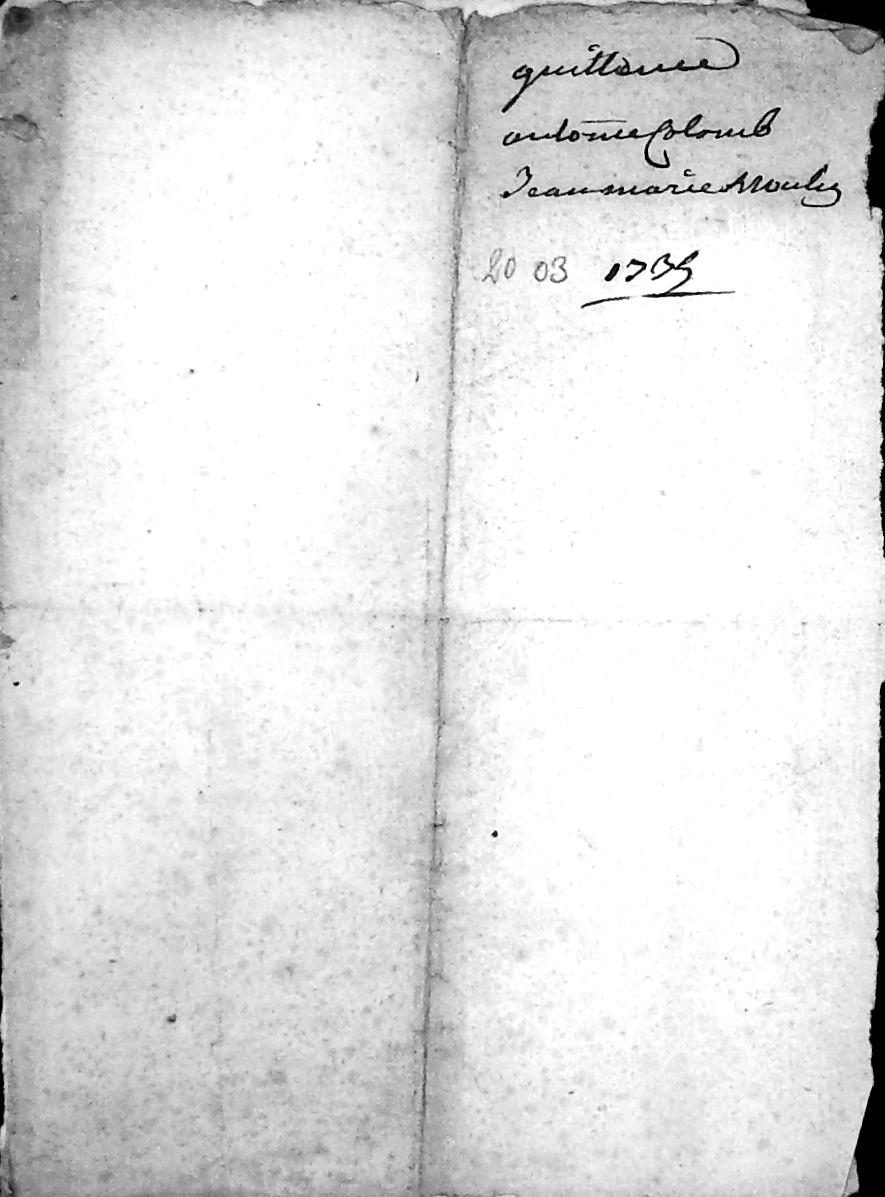 quittance
antoine Colomb
Jean marie
20 03 1735